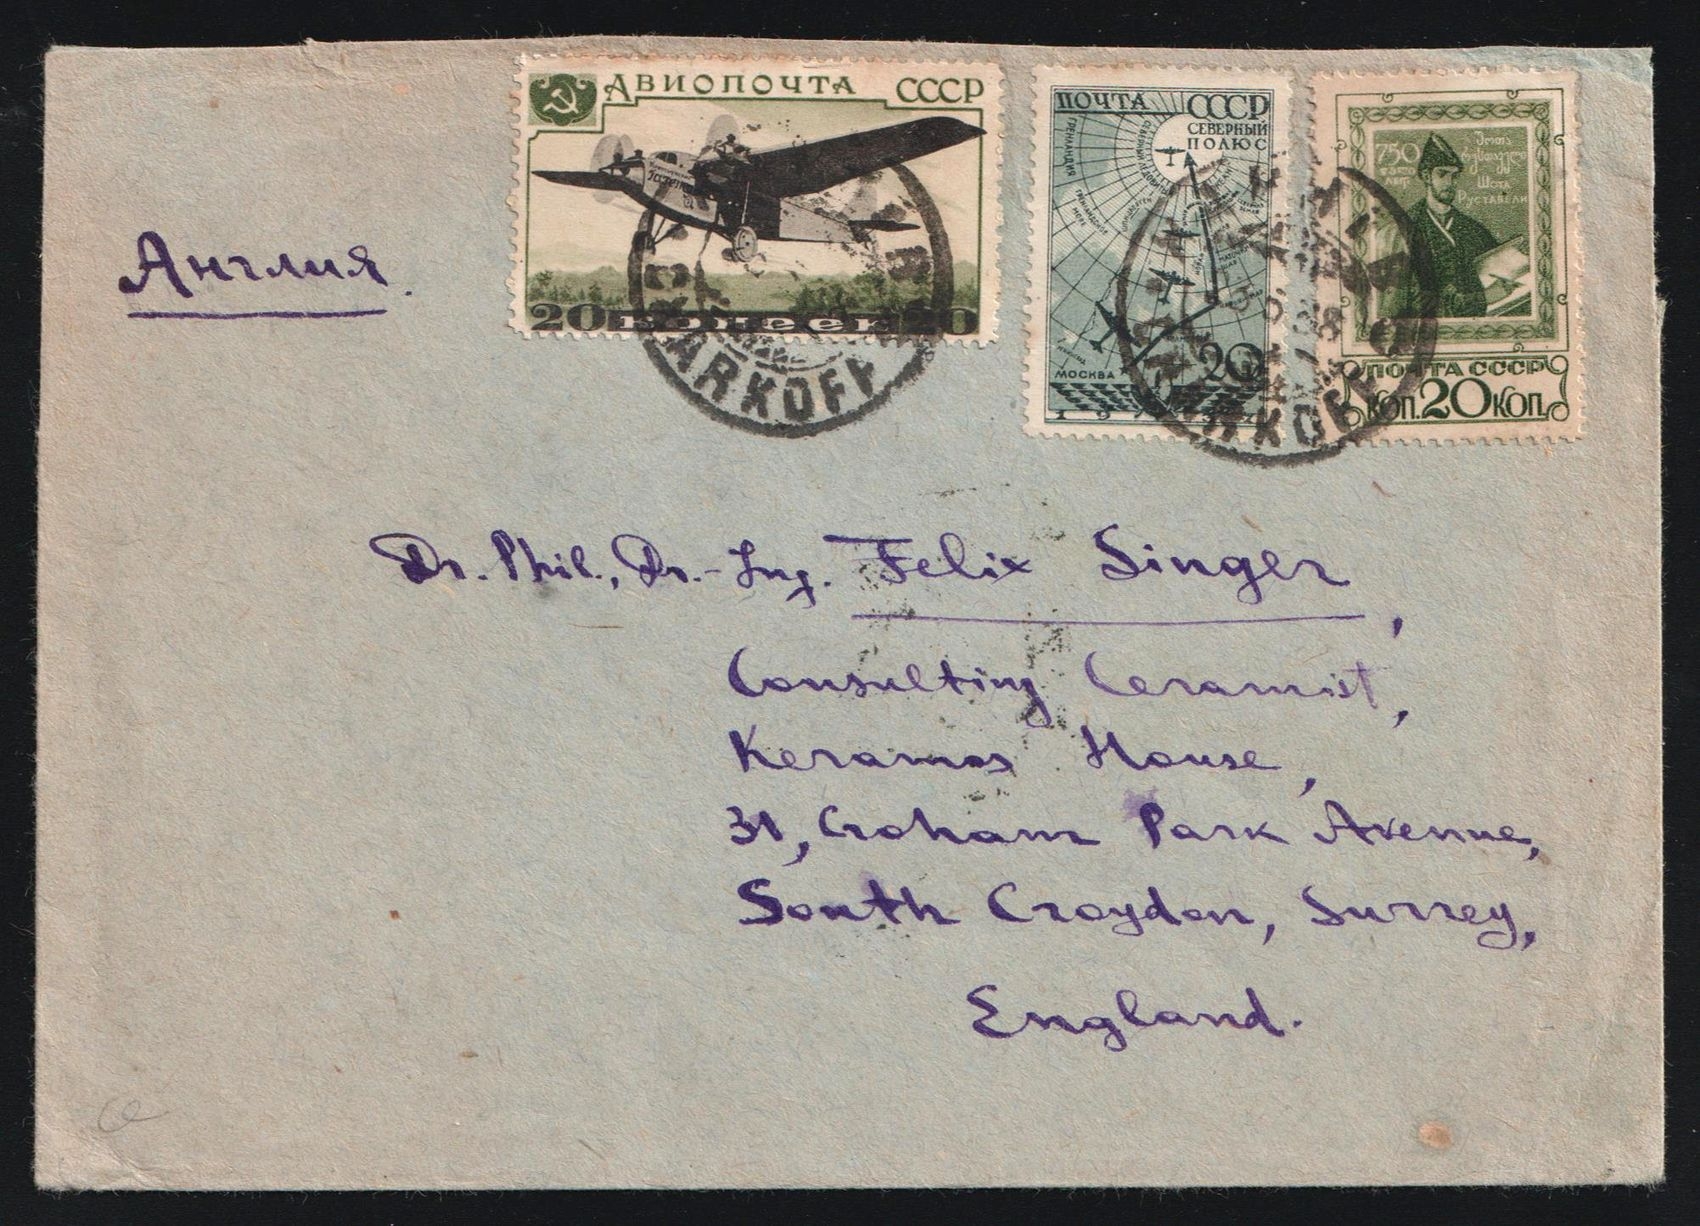 АВИОПОЧТА СССР
20 КОПЕЕК 20
ПОЧТА СССР
СЕВЕРНЫЙ
ПОЛЮС
ГРЕНЛАНДИЯ
МОСКВА
20
750
შოთა
რუსთაველი
Шота
Руставели
ПОЧТА СССР
КОП. 20 КОП.
ARKOFF
Англия.
Dr. Phil., Dr.-Ing. Felix Singer,
Consulting Ceramist,
Keramos House,
31, Croham Park Avenue,
South Croydon, Surrey,
England.